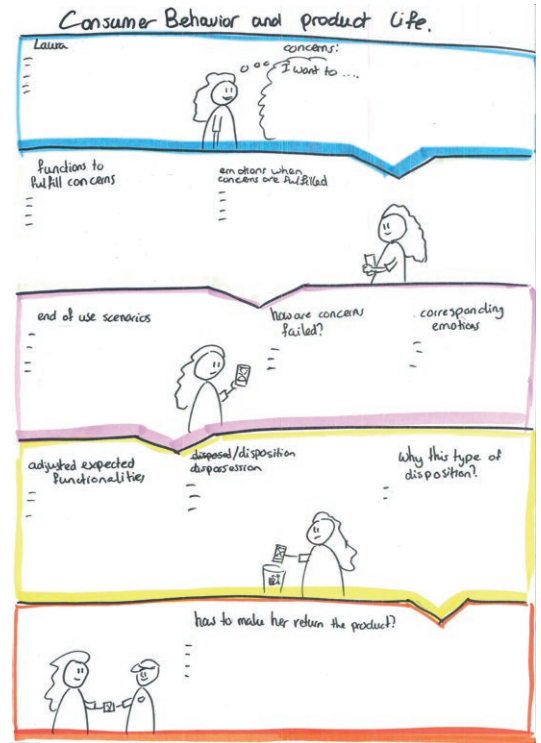 Consumer Behavior and product Life.
Laura
concerns:
I want to ....
functions to
fulfill concerns
emotions when
concerns are fulfilled
end of use scenarios
how are concerns
failed?
corresponding
emotions
adjusted expected
functionalities
disposal/disposition
dispossession
why this type of
disposition?
how to make her return the product?